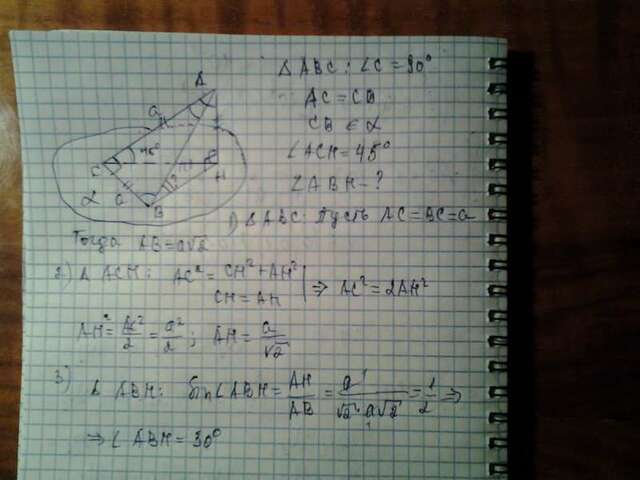 A
a
C
45°
H
α
a
B
Δ ABC : ∠C = 90°
AC = CB
CB ∈ α
∠ACH = 45°
∠ABH - ?
1) Δ ABC: Пусть AC = BC = a
Тогда AB = a√2
2) Δ ACH: AC² = CH² + AH²
CH = AH
⇒ AC² = 2AH²
AH² = AC²/2 = a²/2 ; AH = a/√2
3)
Δ ABH: Sin∠ABH = AH/AB = a/(√2·a√2) = 1/2 ⇒
⇒ ∠ ABH = 30°